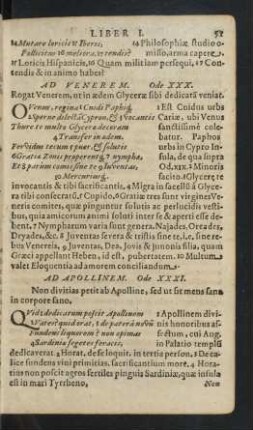 LIBER I. 52
14 Mutare loricis &c Iberis,
Pollicitus 16 meliora, 17 tendis?
15 Loricis Hispanicis, 16 Quam militiam persequi, 17 Contendis & in animo habes?
14 Philosophiæ studio omisso, arma capere.
AD VENEREM. Ode XXX.
Rogat Venerem, ut in ædem Glyceræ sibi dedicatã veniat.
O Venus, regina 1 Cnidi Paphiq;
2 Sperne dilectã Cypron, & 3 vocantis
Thure te multo Glyceræ decoram
4 Transfer in ædem.
Fervidus tecum 5 puer, & solutis
6 Gratiæ Zonis properentq; 7 nymphæ,
Et 8 parum comis sine te 9 Iuventas,
10 Mercuriusq;
1 Est Cnidus urbs Cariæ, ubi Venus sanctissimè colebatur. Paphos urbs in Cypro Insula, de qua supra Od. XIX. 2 Minoris facito. 3 Glyceræ te
invocantis & tibi sacrificantis. 4 Migra in sacellũ à Glycera tibi consecratũ. 5 Cupido. 6 Gratiæ tres sunt virgines Veneris comites, quæ pinguntur solutis ac perlucidis vestibus, quia amicorum animi soluti inter se & aperti esse debent. 7 Nympharum varia sunt genera, Najades, Oreades, Dryades, &c. 8 Juventas severa & tristis sine te, i.e. sine rebus Venereis. 9 Juventas, Dea, Jovis & Junonis filia, quam Græci appellant Heben, id est, pubertatem. 10 Multum valet Eloquentia ad amorem conciliandum.
AD APOLLINEM. Ode XXXI.
Non divitias petit ab Apolline, sed ut sit mens sana in corpore sano.
Quid 1 dedicatum poscit Apollinem
Vates? quid orat, 2 de paterâ novũ
Fundens liquorem? non opimas
4 Sardinia segetes feraces:
1 Apollinem divinis honoribus affectum, cui Aug. in Palatio templũ
dedicaverat. Horat. de se loquit. in tertia person. 2 De calice fundens vini primitias, sacrificans murmure. 4 Horatius non poscit agros fertiles pinguis Sardiniæ, quæ insula est in mari Tyrrheno,
Non